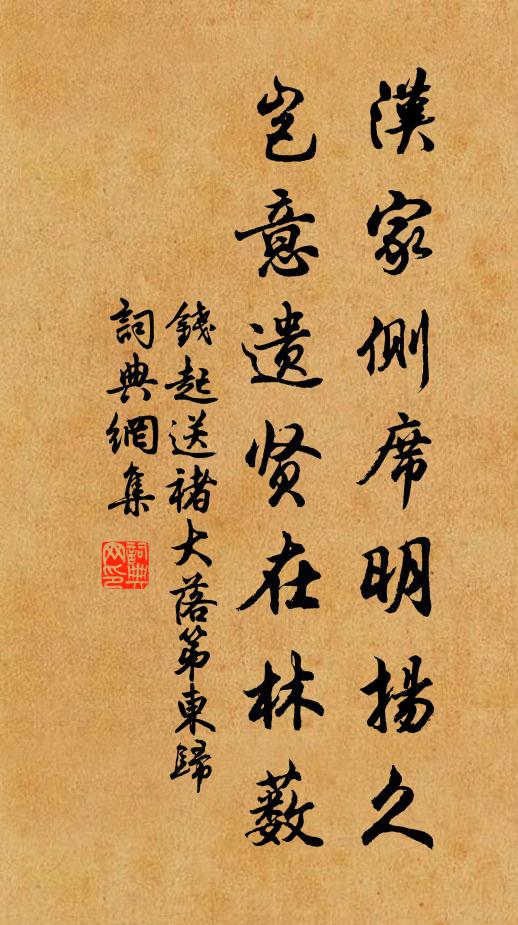 漢家側席明揚久
岂意遗贤在林薮
錢起送褚大落第東歸
詞典網集
詞典网印